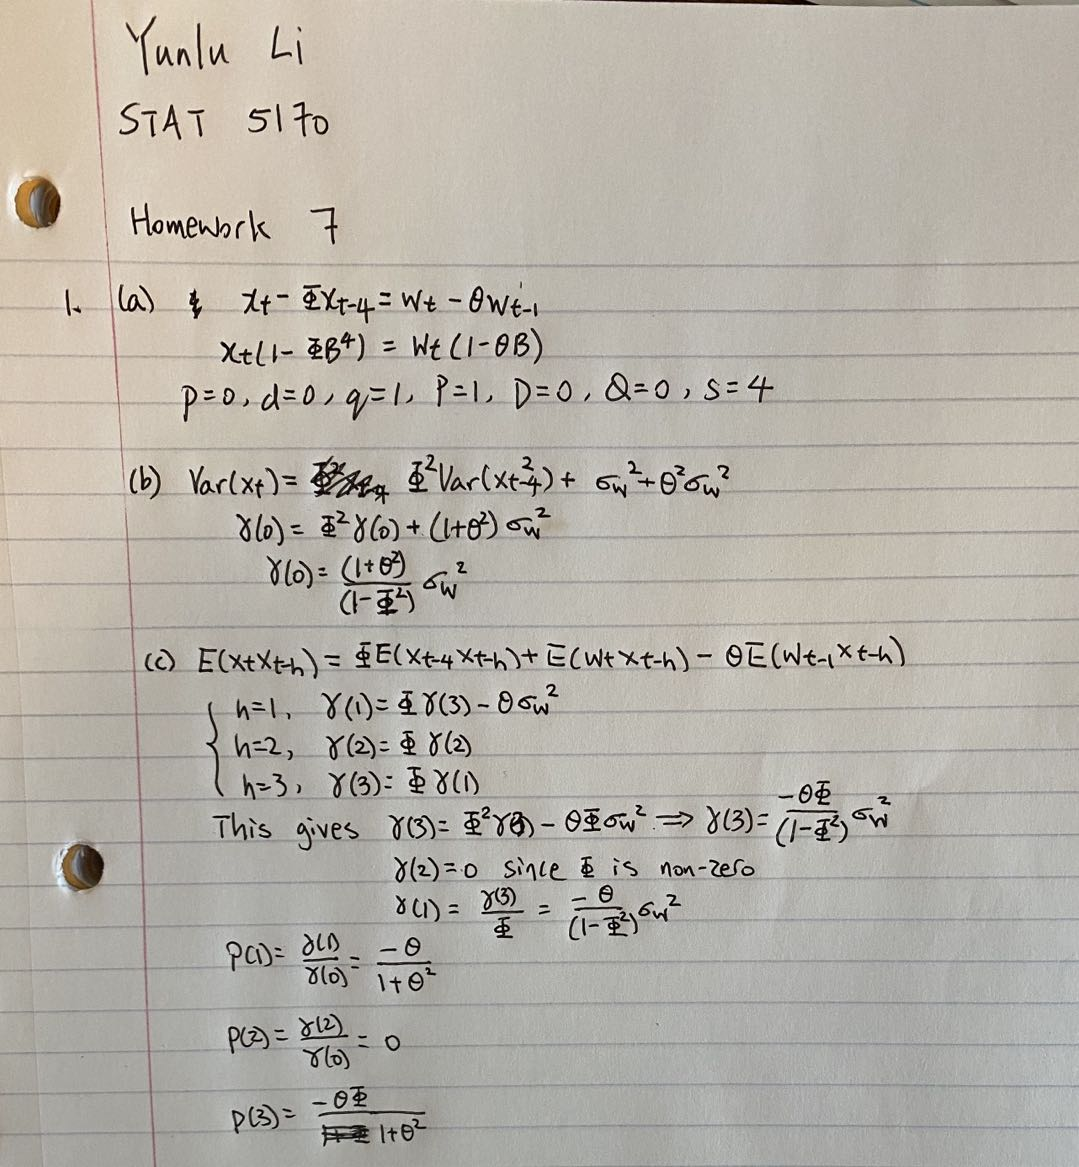 Yunlu Li
STAT 5170
Homework 7
1. (a) xt - Φxt-4 = wt - θwt-1
xt(1 - ΦB⁴) = wt(1 - θB)
p=0, d=0, q=1, P=1, D=0, Q=0, S=4
(b) Var(xt) = Φ²Var(xt-4²) + σw² + θ²σw²
γ(0) = Φ²γ(0) + (1+θ²)σw²
γ(0) = (1+θ²)/(1-Φ²) σw²
(c) E(xtxt-h) = ΦE(xt-4xt-h) + E(wtxt-h) - θE(wt-1xt-h)
{ h=1, γ(1) = Φγ(3) - θσw²
h=2, γ(2) = Φγ(2)
h=3, γ(3) = Φγ(1)
This gives γ(3) = Φ²γ(3) - θΦσw² ⇒ γ(3) = -θΦ/(1-Φ²) σw²
γ(2) = 0 since Φ is non-zero
γ(1) = γ(3)/Φ = -θ/(1-Φ²) σw²
ρ(1) = γ(1)/γ(0) = -θ/1+θ²
ρ(2) = γ(2)/γ(0) = 0
ρ(3) = -θΦ/1+θ²